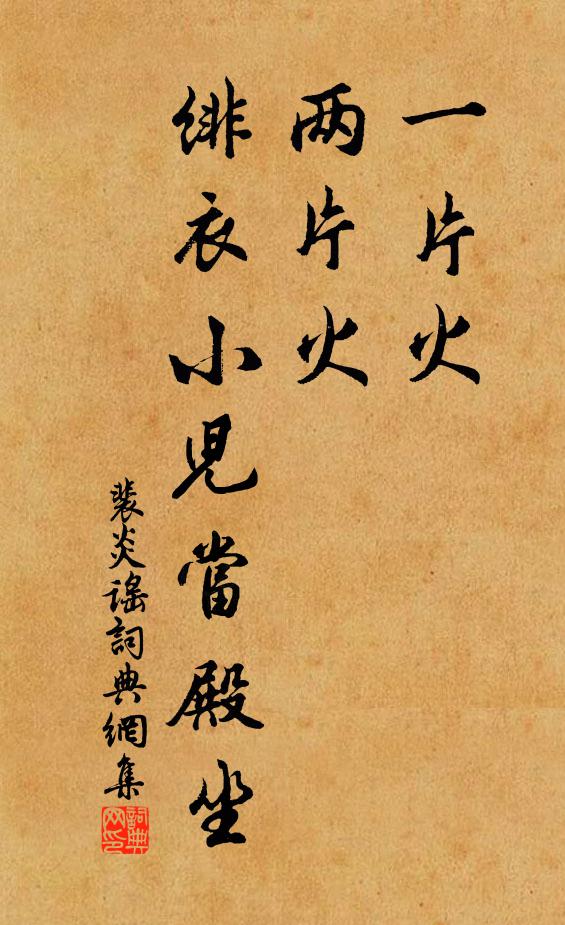 一片火
两片火
緋衣小児當殿坐
裴炎謡詞典網集
詞典网印